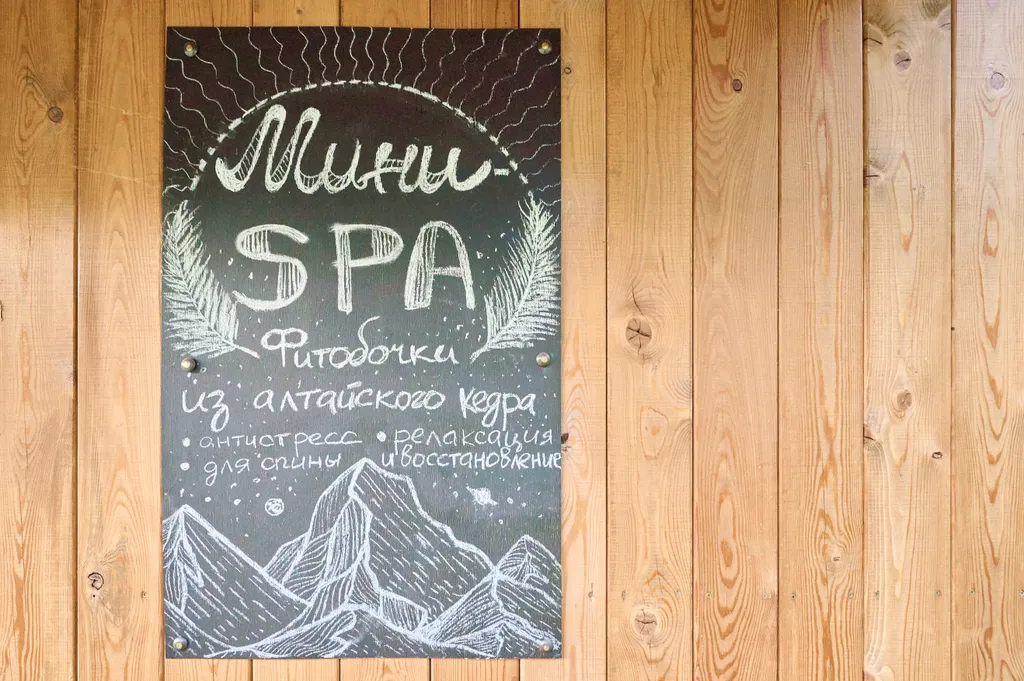 Мини-
SPA
Фитобочки
из алтайского кедра
• антистресс • релаксация
• для спины и восстановление